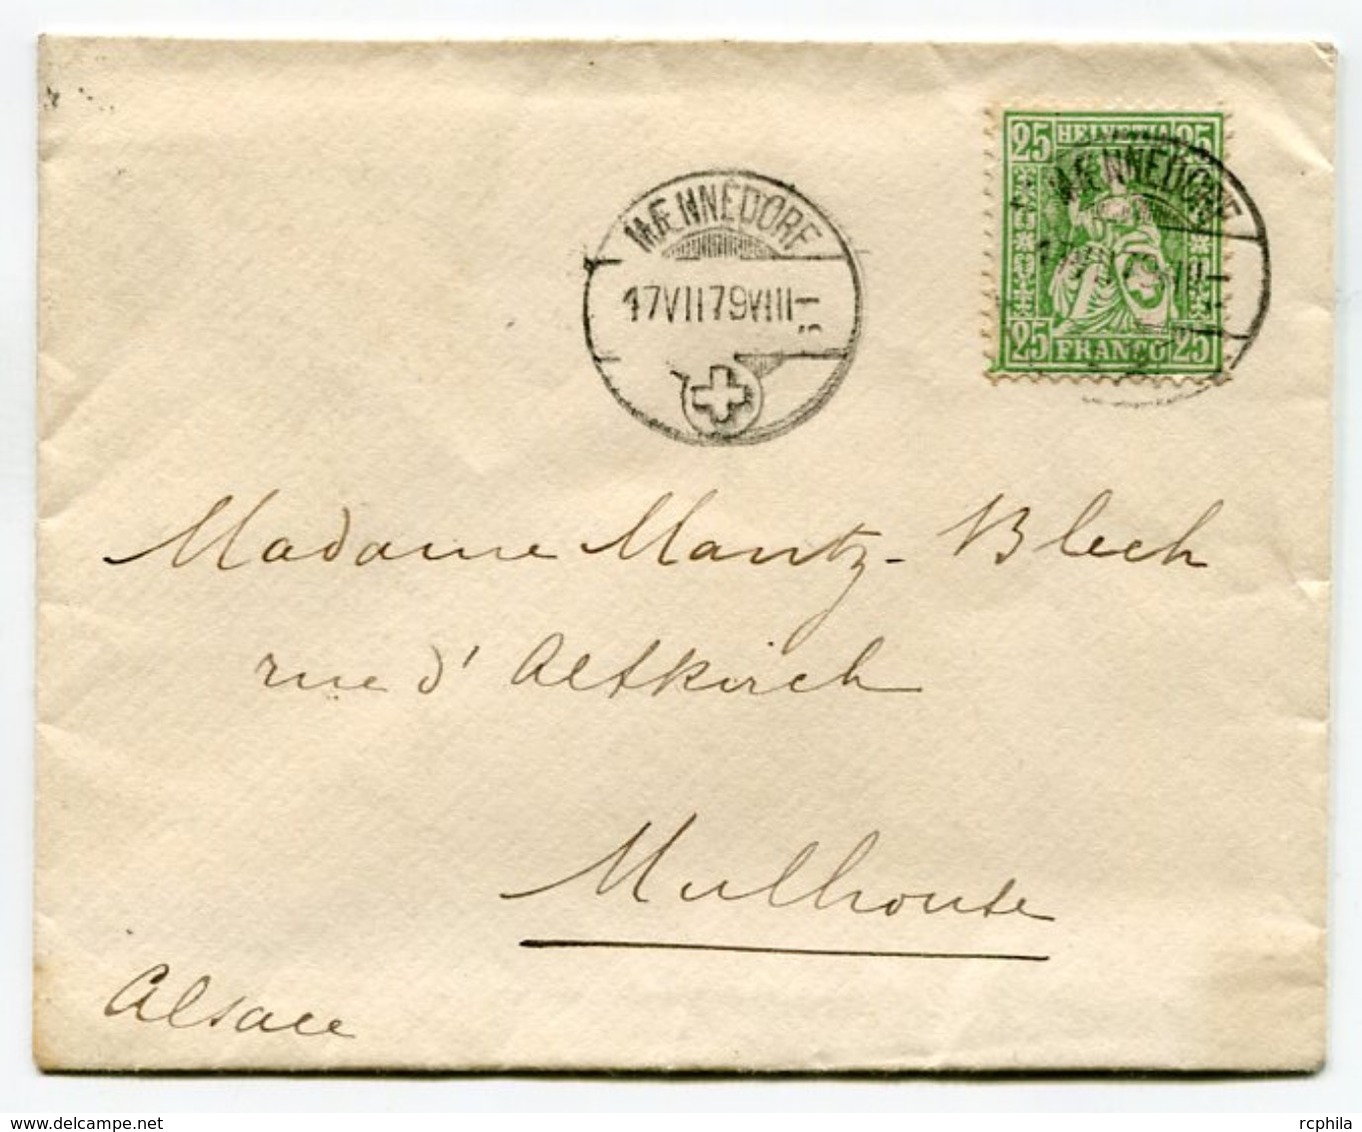 MÆNNEDORF
17 VII 79 VIII
25 HELVETIA 25
MÆNNEDORF
25 FRANCO 25
Madame Mantz-Blech
rue d'Altkirch
Mulhouse
Alsace
www.delcampe.net
rcphila